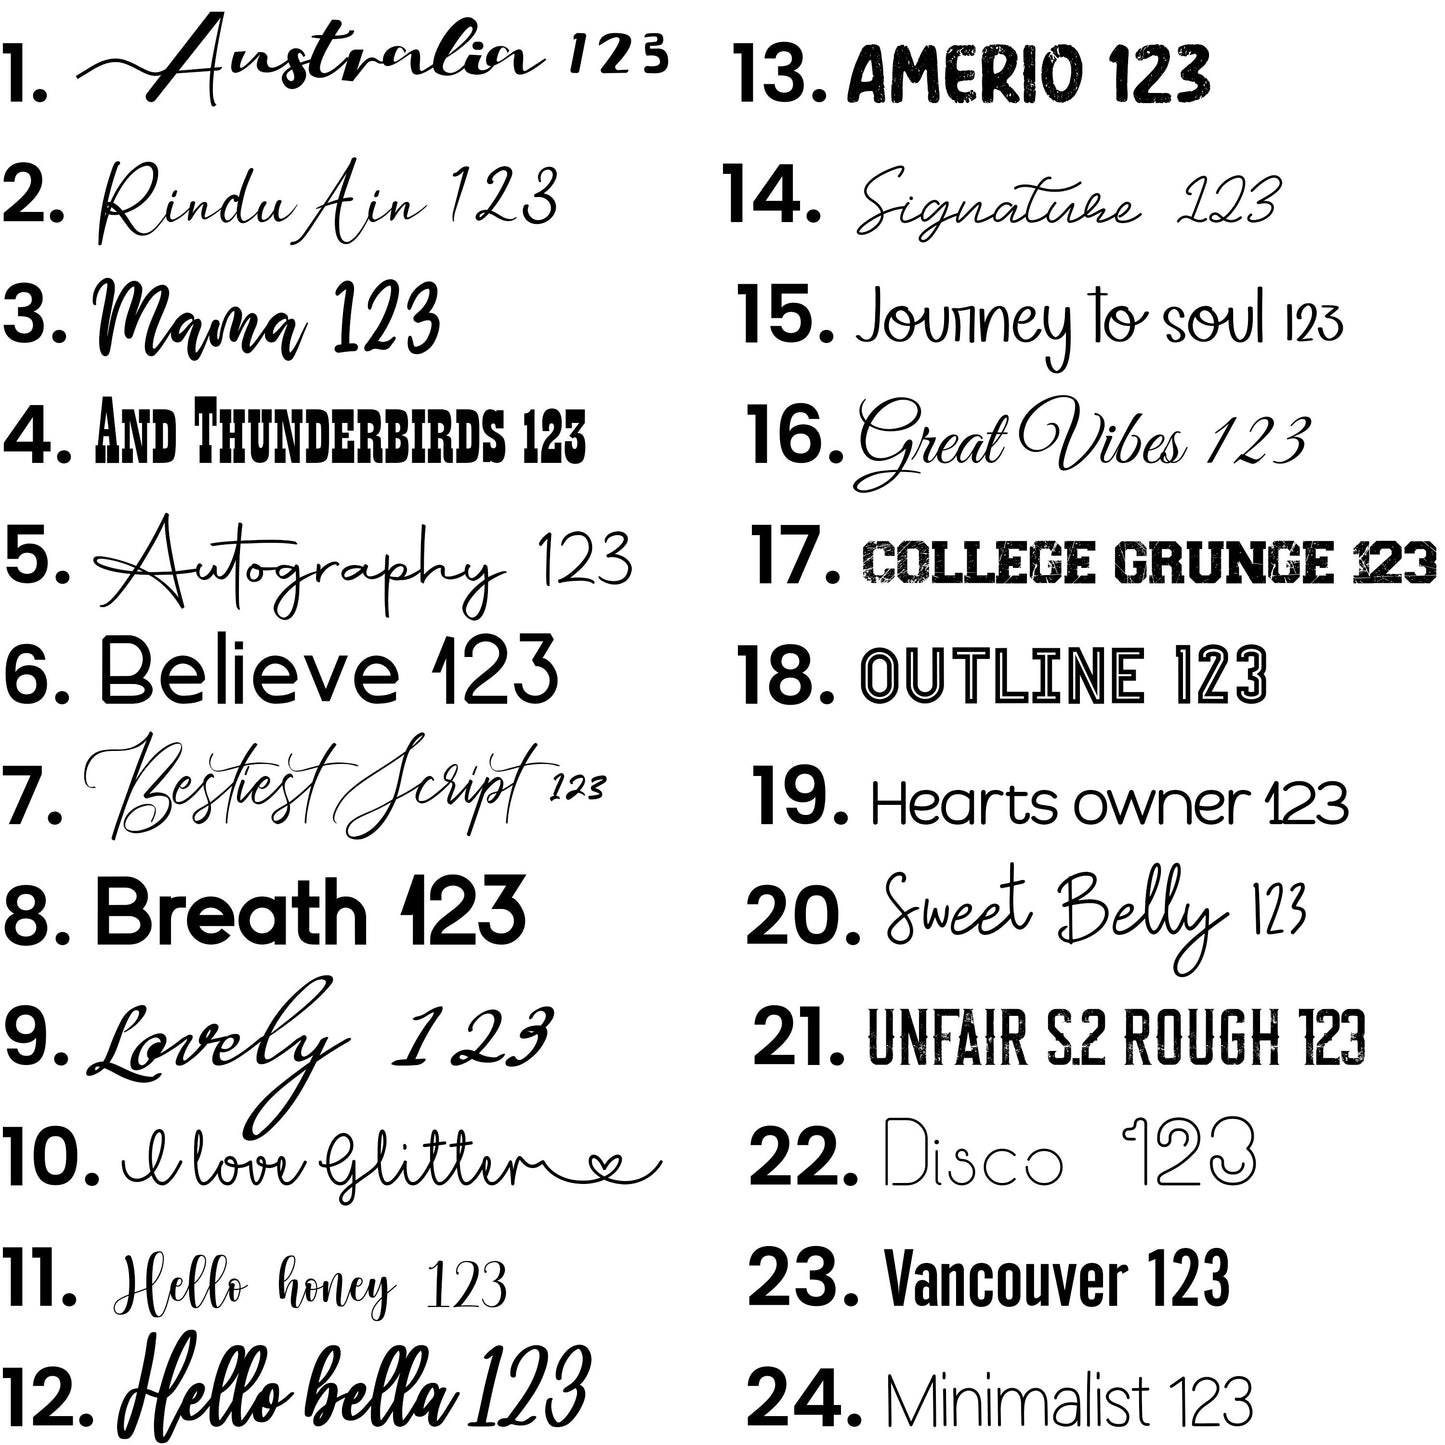 1. Australia 123
2. Rindu Ain 123
3. Mama 123
4. And Thunderbirds 123
5. Autography 123
6. Believe 123
7. Bestiest Script 123
8. Breath 123
9. Lovely 123
10. I love Glitter
11. Hello honey 123
12. Hello bella 123
13. AMERIO 123
14. Signature 123
15. Journey to soul 123
16. Great Vibes 123
17. COLLEGE GRUNGE 123
18. OUTLINE 123
19. Hearts owner 123
20. Sweet Belly 123
21. UNFAIR S.2 ROUGH 123
22. Disco 123
23. Vancouver 123
24. Minimalist 123